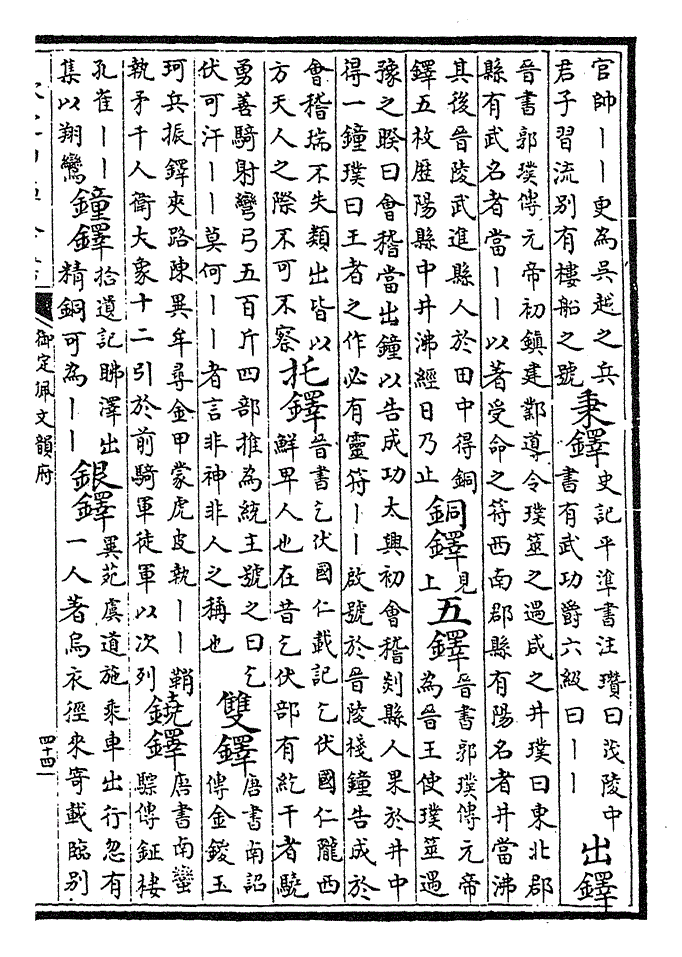 官帥丨丨更為吳越之兵
君子習流别有樓船之號
秉鐸
史記平準書注瓚曰茂陵中
書有武功爵六級曰丨丨
出鐸
晉書郭璞傳元帝初鎮建鄴導令璞筮之遇咸之井璞曰東北郡
縣有武名者當丨丨以著受命之符西南郡縣有陽名者井當沸
其後晉陵武進縣人於田中得銅
鐸五枚歴陽縣中井沸經日乃止
銅鐸
見
上
五鐸
晉書郭璞傳元帝
為晉王使璞筮遇
豫之睽曰會稽當出鐘以告成功太興初會稽剡縣人果於井中
得一鐘璞曰王者之作必有靈符丨丨啟號於晉陵棧鐘告成於
會稽瑞不失類出皆以
方天人之際不可不察
托鐸
晉書乞伏國仁載記乞伏國仁隴西
鮮卑人也在昔乞伏部有紇干者驍
勇善騎射彎弓五百斤四部推為統主號之曰乞
伏可汗丨丨莫何丨丨者言非神非人之稱也
雙鐸
唐書南詔
傳金鍐玉
珂兵振鐸夾路陳異牟尋金甲蒙虎皮執丨丨鞘
執矛千人衛大象十二引於前騎軍徒軍以次列
鐃鐸
唐書南蠻
驃傳鉦棲
孔雀丨丨
集以翔鸞
鐘鐸
拾遺記眎澤出
精銅可為丨丨
銀鐸
異苑虞道施乘車出行忽有
一人著烏衣徑來寄載臨别
御定佩文韻府
四十四